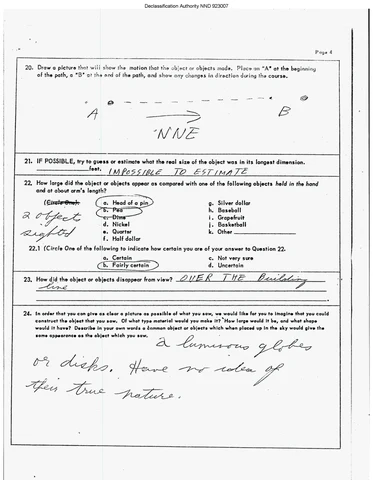 Declassification Authority NND 923007
Page 4
20. Draw a picture that will show the motion that the object or objects made. Place an "A" at the beginning
of the path, a "B" at the end of the path, and show any changes in direction during the course.
A B
NNE
21. IF POSSIBLE, try to guess or estimate what the real size of the object was in its longest dimension.
feet. IMPOSSIBLE TO ESTIMATE
22. How large did the object or objects appear as compared with one of the following objects held in the hand
and at about arm's length?
(Circle One): a. Head of a pin g. Silver dollar
2 objects b. Pea h. Baseball
sighted c. Dime i. Grapefruit
d. Nickel j. Basketball
e. Quarter k. Other
f. Half dollar
22.1 (Circle One of the following to indicate how certain you are of your answer to Question 22.
a. Certain c. Not very sure
b. Fairly certain d. Uncertain
23. How did the object or objects disappear from view? OVER THE Building
line
24. In order that you can give as clear a picture as possible of what you saw, we would like for you to imagine that you could
construct the object that you saw. Of what type material would you make it? How large would it be, and what shape
would it have? Describe in your own words a common object or objects which when placed up in the sky would give the
same appearance as the object which you saw.
2 luminous globes
or disks. Have no idea of
their true nature.